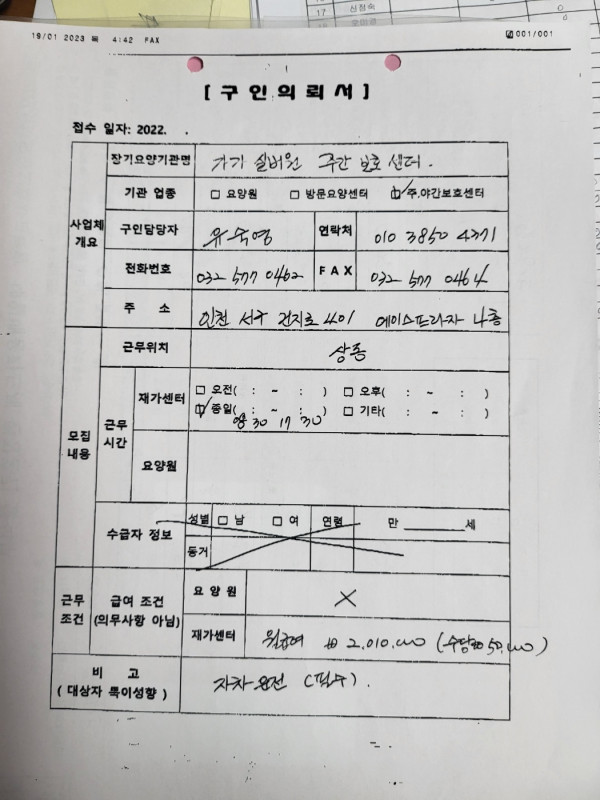 17 신장숙 0
19/01 2023 목 4:42 FAX 001/001
[ 구 인 의 뢰 서 ]
접수 일자: 2022. .
사업체 개요
장기요양기관명 가기 실버원 주간 보호 센터.
기관 업종 □ 요양원 □ 방문요양센터 ☑ 주.야간보호센터
구인담당자 유숙영 연락처 010 3850 4371
전화번호 032 577 0462 FAX 032 577 0464
주 소 인천 서구 건지로 401 에이스프라자 4층
모집 내용
근무위치 상동
근무 시간
재가센터 □ 오전( : ~ : ) □ 오후( : ~ : )
☑ 종일( : ~ : ) □ 기타( : ~ : )
08 30 17 30
요양원
수급자 정보 성별 □ 남 □ 여 연령 만 ______세
동거
근무 조건
급여 조건 (의무사항 아님)
요 양 원 X
재가센터 월급여 ₩ 2,010,000 (수당₩50,000)
비 고
( 대상자 특이성향 ) 자차운전 (필수).